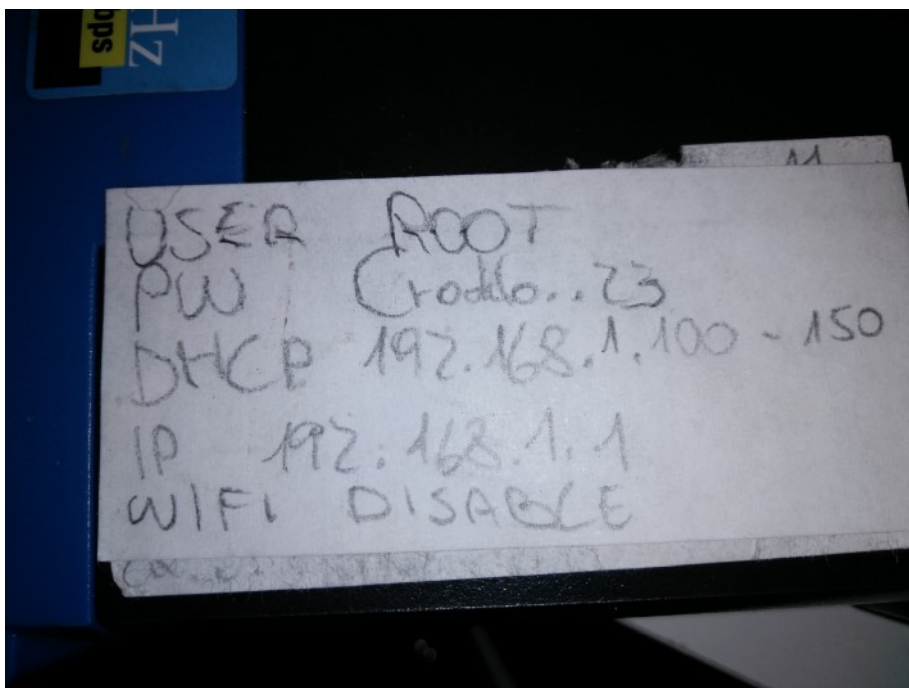 ops
Hz
11
USER ROOT
PW Croddo..23
DHCP 192.168.1.100 - 150
IP 192.168.1.1
WIFI DISABLE